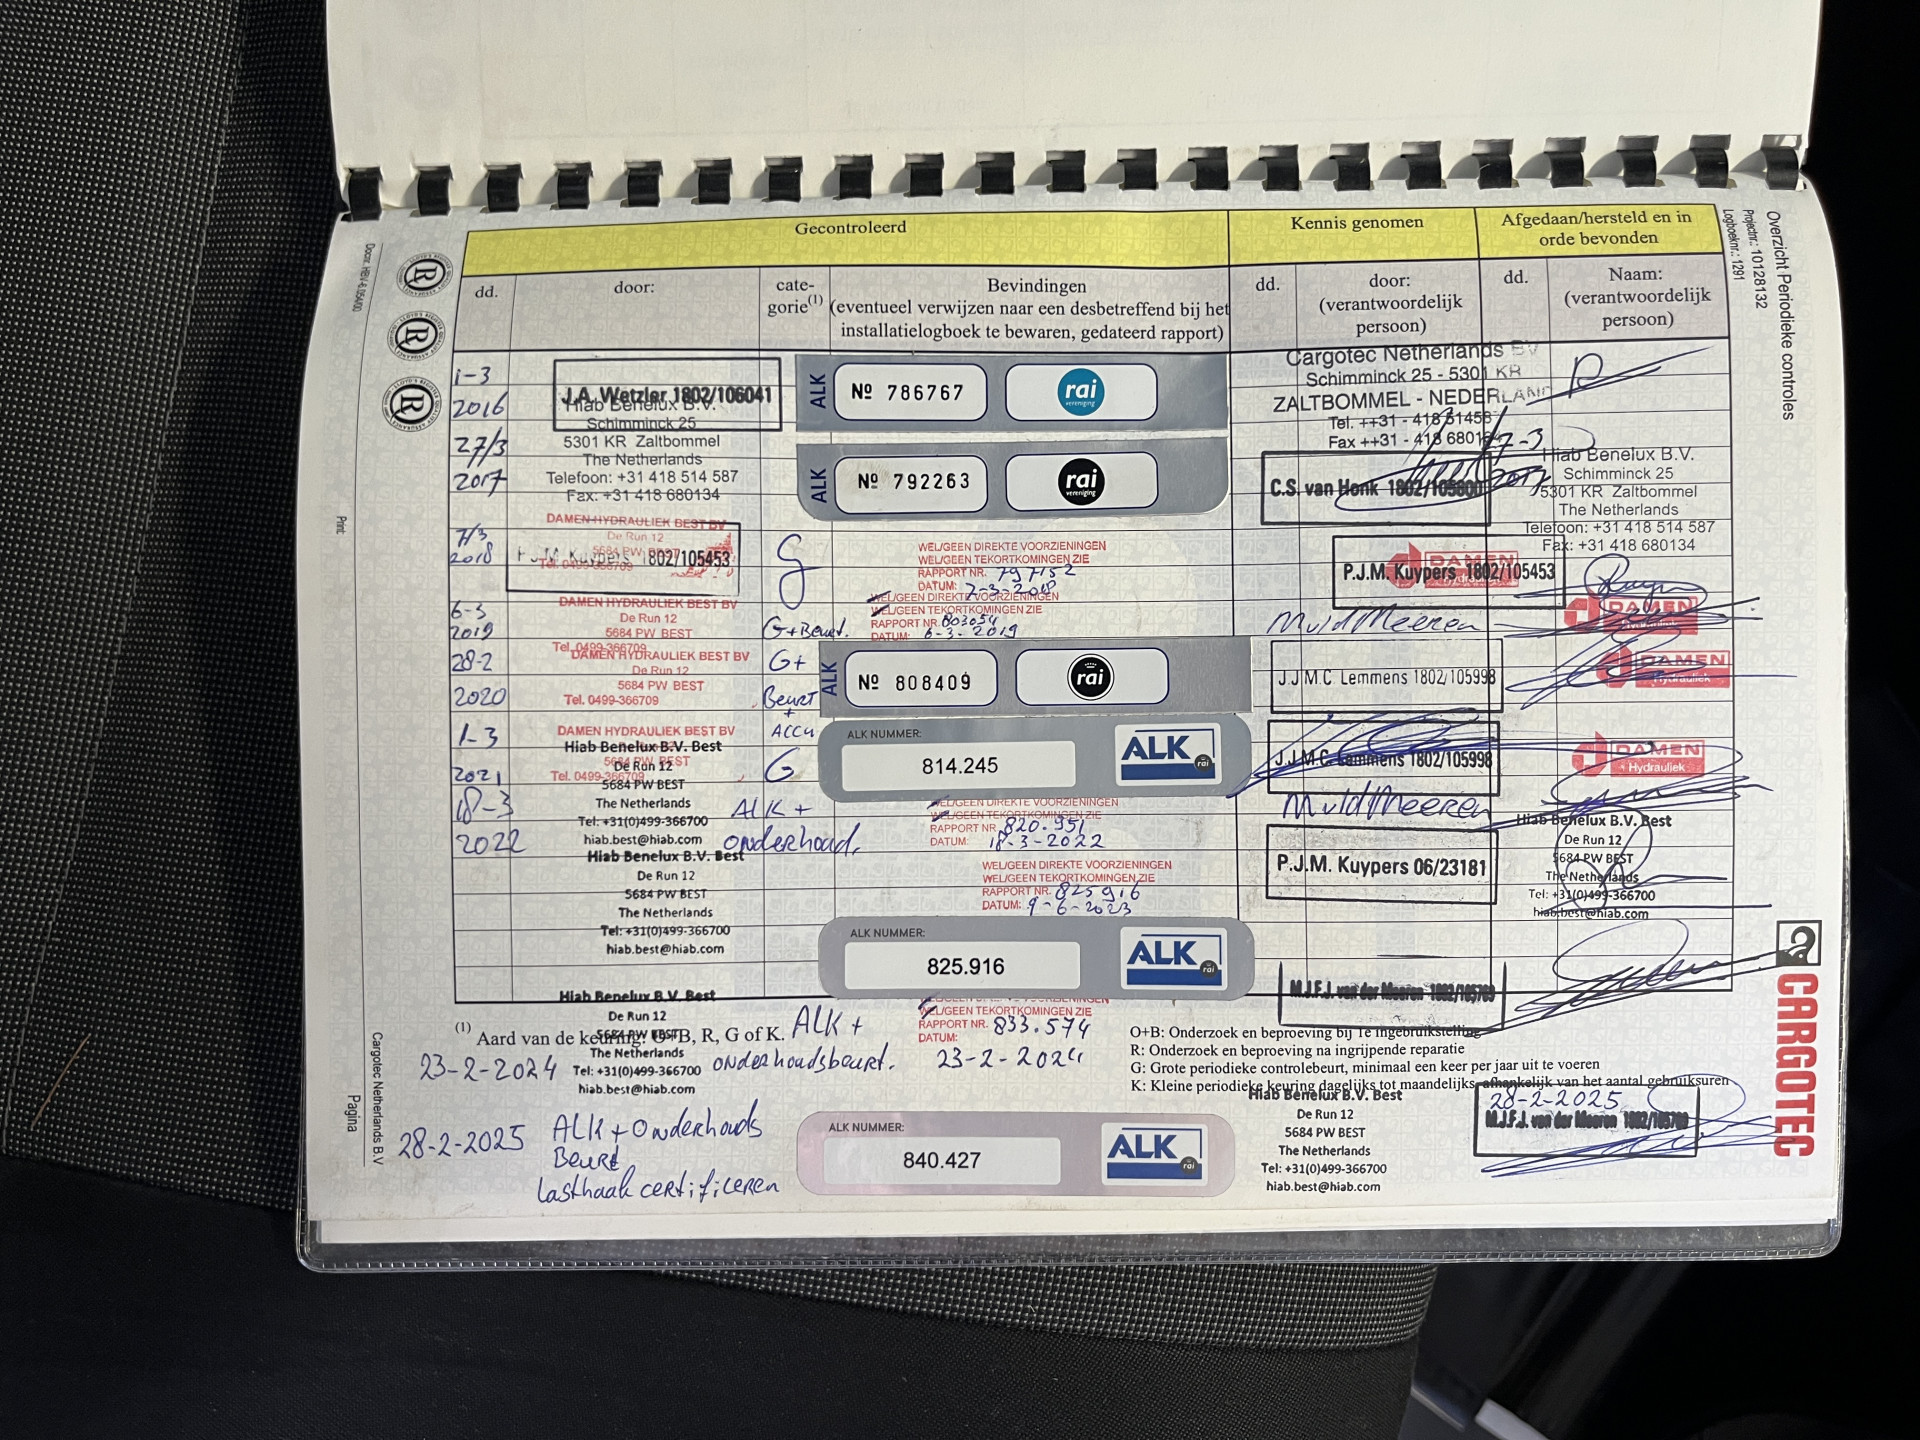 Overzicht Periodieke controles
Projectnr.: 10128132
Logboeknr.: 1291
Gecontroleerd
Kennis genomen
Afgedaan/hersteld en in
orde bevonden
dd.
door:
cate-
gorie(1)
Bevindingen
(eventueel verwijzen naar een desbetreffend bij het
installatielogboek te bewaren, gedateerd rapport)
dd.
door:
(verantwoordelijk
persoon)
dd.
Naam:
(verantwoordelijk
persoon)
1-3
2016
J.A. Wetzler 1802/106041
Hiab Benelux B.V.
Schimminck 25
5301 KR Zaltbommel
The Netherlands
Telefoon: +31 418 514 587
Fax: +31 418 680134
ALK
Nº 786767
rai
vereniging
Cargotec Netherlands BV
Schimminck 25 - 5301 KR
ZALTBOMMEL - NEDERLAND
Tel. ++31 - 418 51458
Fax ++31 - 418 6801
27/3
2017
ALK
Nº 792263
rai
vereniging
C.S. van Honk 1802/105800
17-3
2017
Hiab Benelux B.V.
Schimminck 25
5301 KR Zaltbommel
The Netherlands
Telefoon: +31 418 514 587
Fax: +31 418 680134
7/3
2018
DAMEN HYDRAULIEK BEST BV
De Run 12
5684 PW BEST
Tel. 0499-366709
P.J.M. Kuypers 1802/105453
G
WEL/GEEN DIREKTE VOORZIENINGEN
WEL/GEEN TEKORTKOMINGEN ZIE
RAPPORT NR. 797152
DATUM: 7-3-2018
DAMEN
Hydrauliek
P.J.M. Kuypers 1802/105453
6-3
2019
DAMEN HYDRAULIEK BEST BV
De Run 12
5684 PW BEST
Tel. 0499-366709
G+Beurt.
WEL/GEEN DIREKTE VOORZIENINGEN
WEL/GEEN TEKORTKOMINGEN ZIE
RAPPORT NR. 803054
DATUM: 6-3-2019
MvldMeeren
DAMEN
Hydrauliek
28-2
2020
DAMEN HYDRAULIEK BEST BV
De Run 12
5684 PW BEST
Tel. 0499-366709
G+
Beurt
+
Accu
ALK
Nº 808409
rai
J.J.M.C. Lemmens 1802/105998
DAMEN
Hydrauliek
1-3
2021
DAMEN HYDRAULIEK BEST BV
5684 PW BEST
Tel. 0499-366709
G
ALK NUMMER:
814.245
ALK
rai
J.J.M.C. Lemmens 1802/105998
DAMEN
Hydrauliek
18-3
2022
Hiab Benelux B.V. Best
De Run 12
5684 PW BEST
The Netherlands
Tel: +31(0)499-366700
hiab.best@hiab.com
ALK +
onderhoud.
WEL/GEEN DIREKTE VOORZIENINGEN
WEL/GEEN TEKORTKOMINGEN ZIE
RAPPORT NR. 820.951
DATUM: 18-3-2022
MvldMeeren
Hiab Benelux B.V. Best
De Run 12
5684 PW BEST
The Netherlands
Tel: +31(0)499-366700
hiab.best@hiab.com
Hiab Benelux B.V. Best
De Run 12
5684 PW BEST
The Netherlands
Tel: +31(0)499-366700
hiab.best@hiab.com
WEL/GEEN DIREKTE VOORZIENINGEN
WEL/GEEN TEKORTKOMINGEN ZIE
RAPPORT NR. 825916
DATUM: 9-6-2023
P.J.M. Kuypers 06/23181
ALK NUMMER:
825.916
ALK
rai
M.J.F.J. van der Meeren 1802/105789
(1) Aard van de keuring: O+B, R, G of K.
Hiab Benelux B.V. Best
De Run 12
5684 PW BEST
The Netherlands
Tel: +31(0)499-366700
hiab.best@hiab.com
23-2-2024
ALK +
onderhoudsbeurt.
WEL/GEEN TEKORTKOMINGEN ZIE
RAPPORT NR. 833.574
DATUM:
23-2-2024
O+B: Onderzoek en beproeving bij 1e ingebruikstelling
R: Onderzoek en beproeving na ingrijpende reparatie
G: Grote periodieke controlebeurt, minimaal een keer per jaar uit te voeren
K: Kleine periodieke keuring dagelijks tot maandelijks, afhankelijk van het aantal gebruiksuren
28-2-2025
ALK + Onderhouds
Beurt
Lasthaak certificeren
ALK NUMMER:
840.427
ALK
rai
Hiab Benelux B.V. Best
De Run 12
5684 PW BEST
The Netherlands
Tel: +31(0)499-366700
hiab.best@hiab.com
28-2-2025
M.J.F.J. van der Meeren 1802/105789
CARGOTEC
Print:
Pagina
Cargotec Netherlands B.V